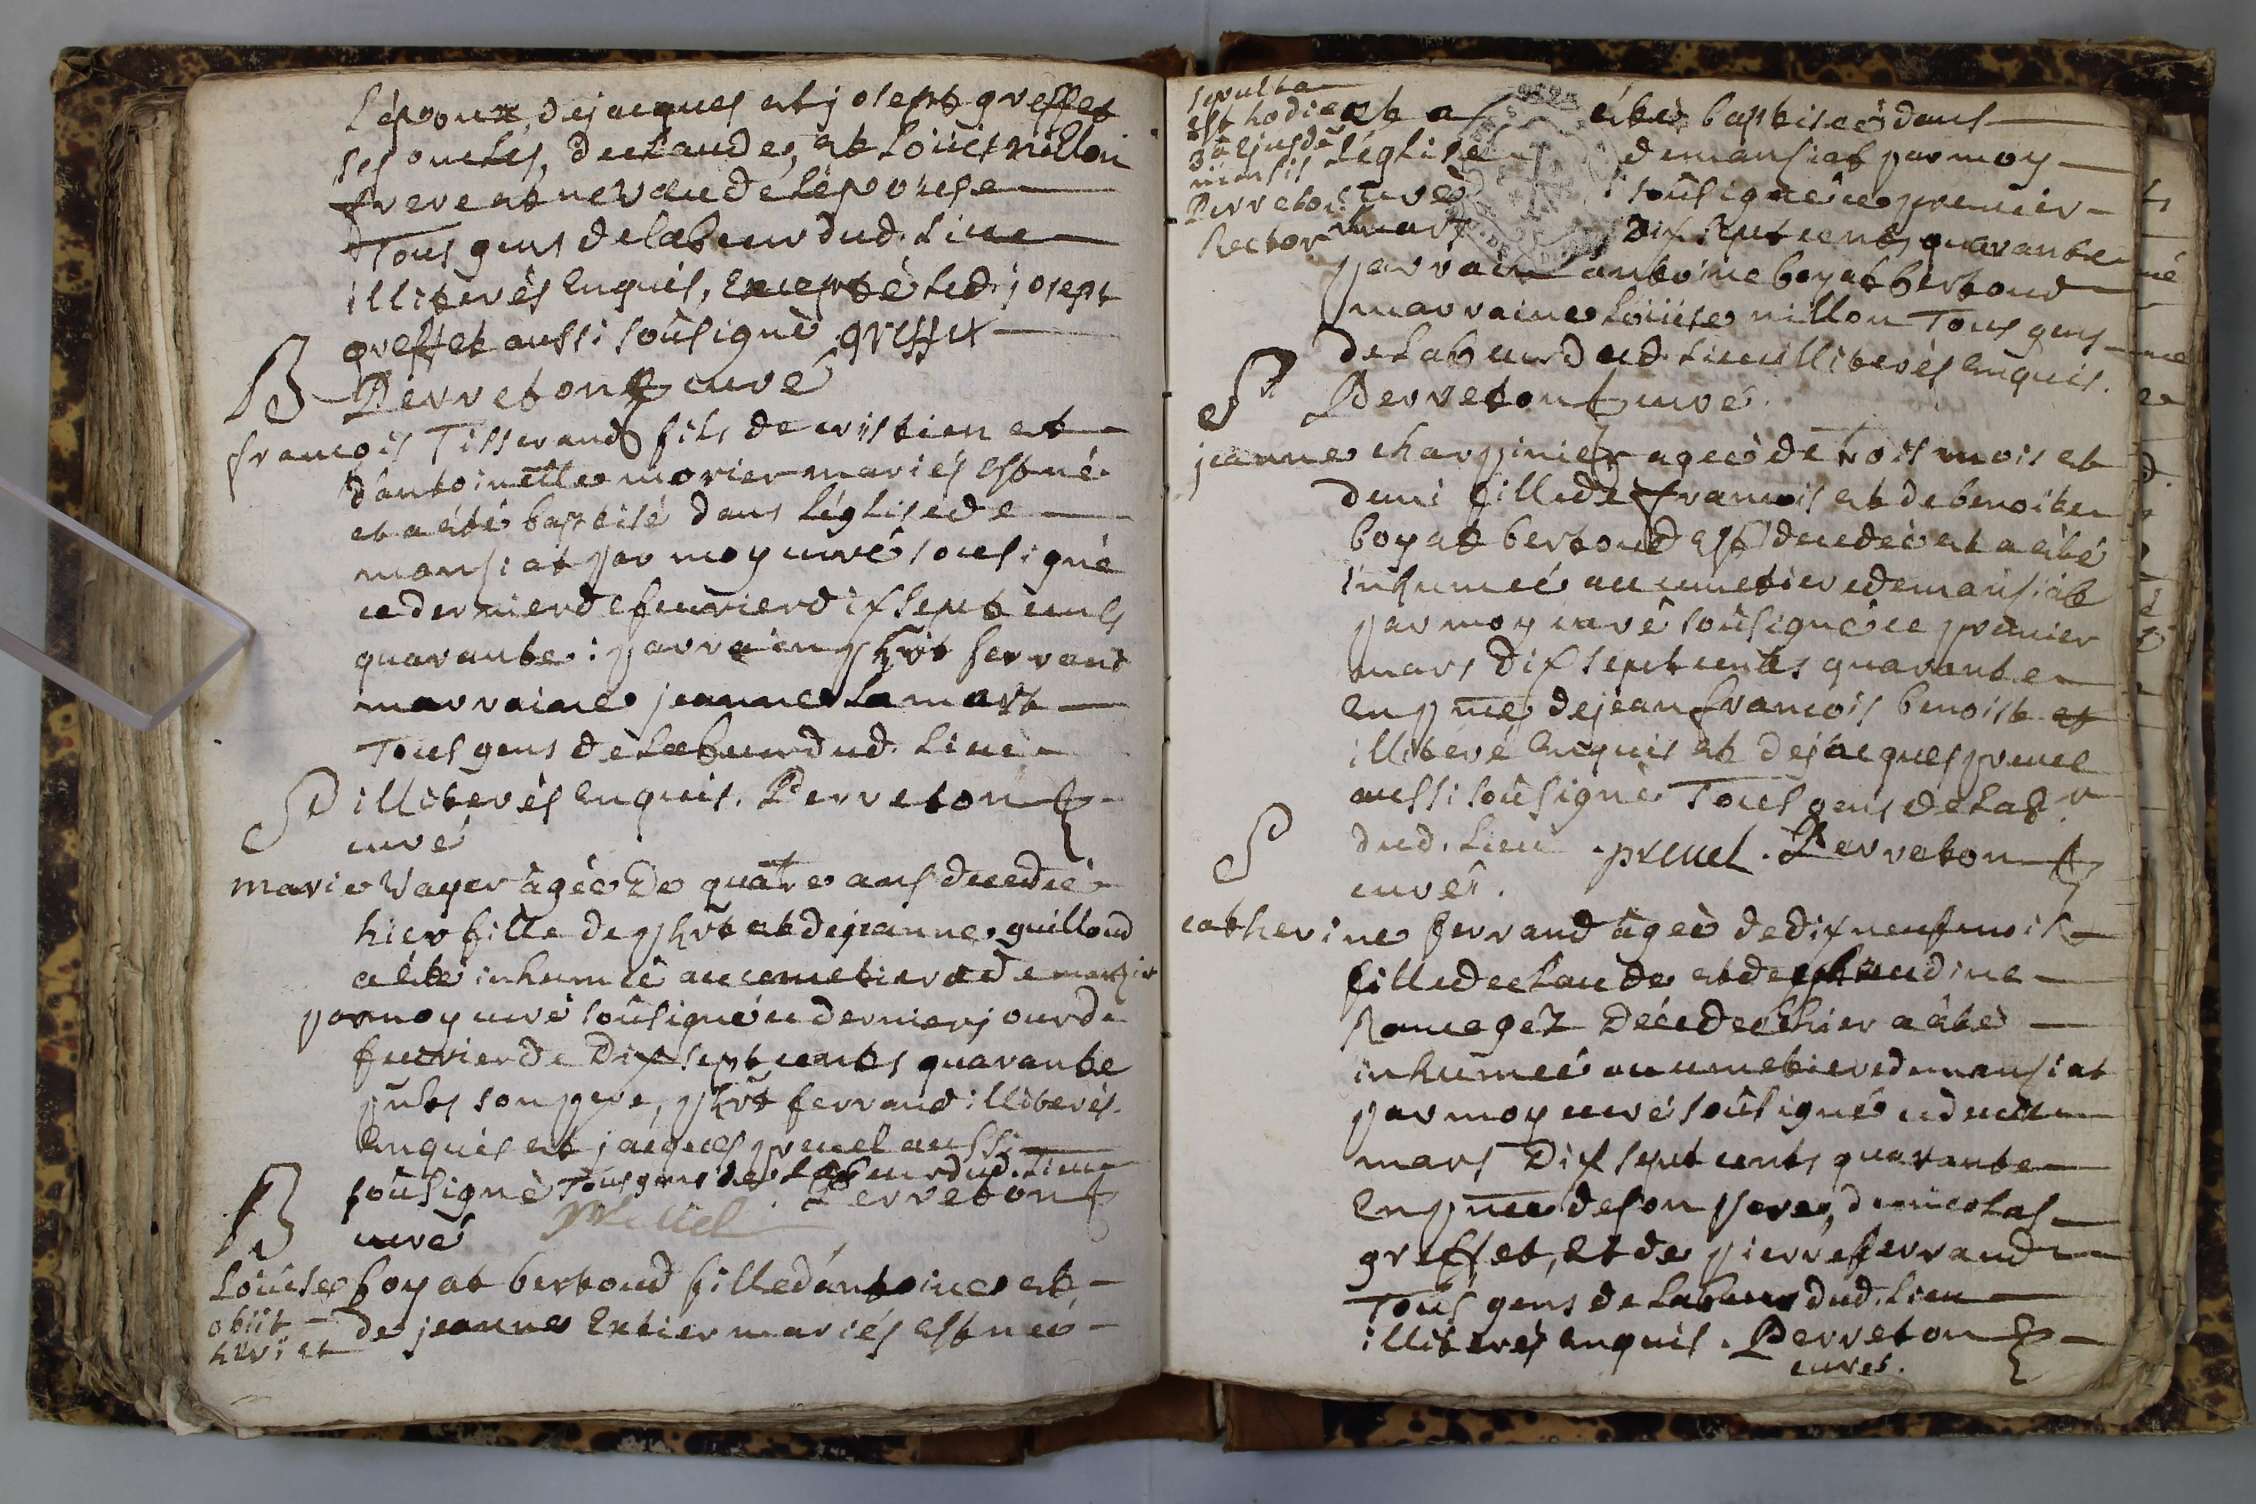 L'epoux, de jacques et joseph greffet
ses oncles, de claude, et Loüis nillon
frere et neveu de l'epouse
Tous gens de labeur dud. Lieu
illiterés enquis, Excepté led. joseph
greffet aussi soûsigné greffet
B Perreton curé
francois Tisserand fils de cristien et
d'antoinette morier mariés est né
et a été baptisé dans L'église de
mansiat par moy curé sousigné
ce dernier de feuvrier dix sept cents
quarante : parrain phrt ferrand
marraine jeanne Lamart
Tous gens de Labeur dud. Lieu
S illiterés enquis. Perreton
curé
marie Vayer âgée De quatre ans decedeé
hier fille de phrt et de jeanne guilloud
a été inhumeé au cemetiere de mansia
par moy curé soûsigné ce dernier jour de
feuvrier de Dix sept cents quarante
pnts son pere, phrt ferrand illiterés
enquis et jacques pruel aussi
soûsigné Tous gens de Labeur dud. Lieu
Perreton
B curé pruel
Loüise boyat bertoud fille d'antoine et
obiit de jeanne Extier mariés est neé
heri et
sepulta
est hodie et a été baptiseé dans
3a ejusdē L'église demansiat par moy
mensis curé soûsigné ce premier
Perreton mars Dix sept cents quarante
Rector
parrain antoine boyat bertoud
marraine Loüise nillon Tous gens
de Labeur dud. Lieu illiterés enquis.
S Perreton curé.
jeanne charpinier ageé de trois mois et
demi fille de francois et de benoite
boyat bertoud est decedeé et a été
inhumeé au cemetiere de mansiat
par moy curé soûsigné ce premier
mars Dix sept cents quarante
en pnce de jean francois benoist et
illiteré enquis et de jacques pruel
aussi soûsigné Tous gens de Labr
S dud. Lieu . pruel . Perreton
curé.
catherine ferrand âgeé de dix neuf mois
fille de claude et de claudine
Ramegez Décedeé hier a été
inhumeé au cemetiere de mansiat
par moy curé soûsigné ce deux
mars Dix sept cents quarante
En pnce de son pere, de nicolas
greffet, et de pierre ferrand
Tous gens de Labeur dud. Lieu
illiterés enquis. Perreton
curé.